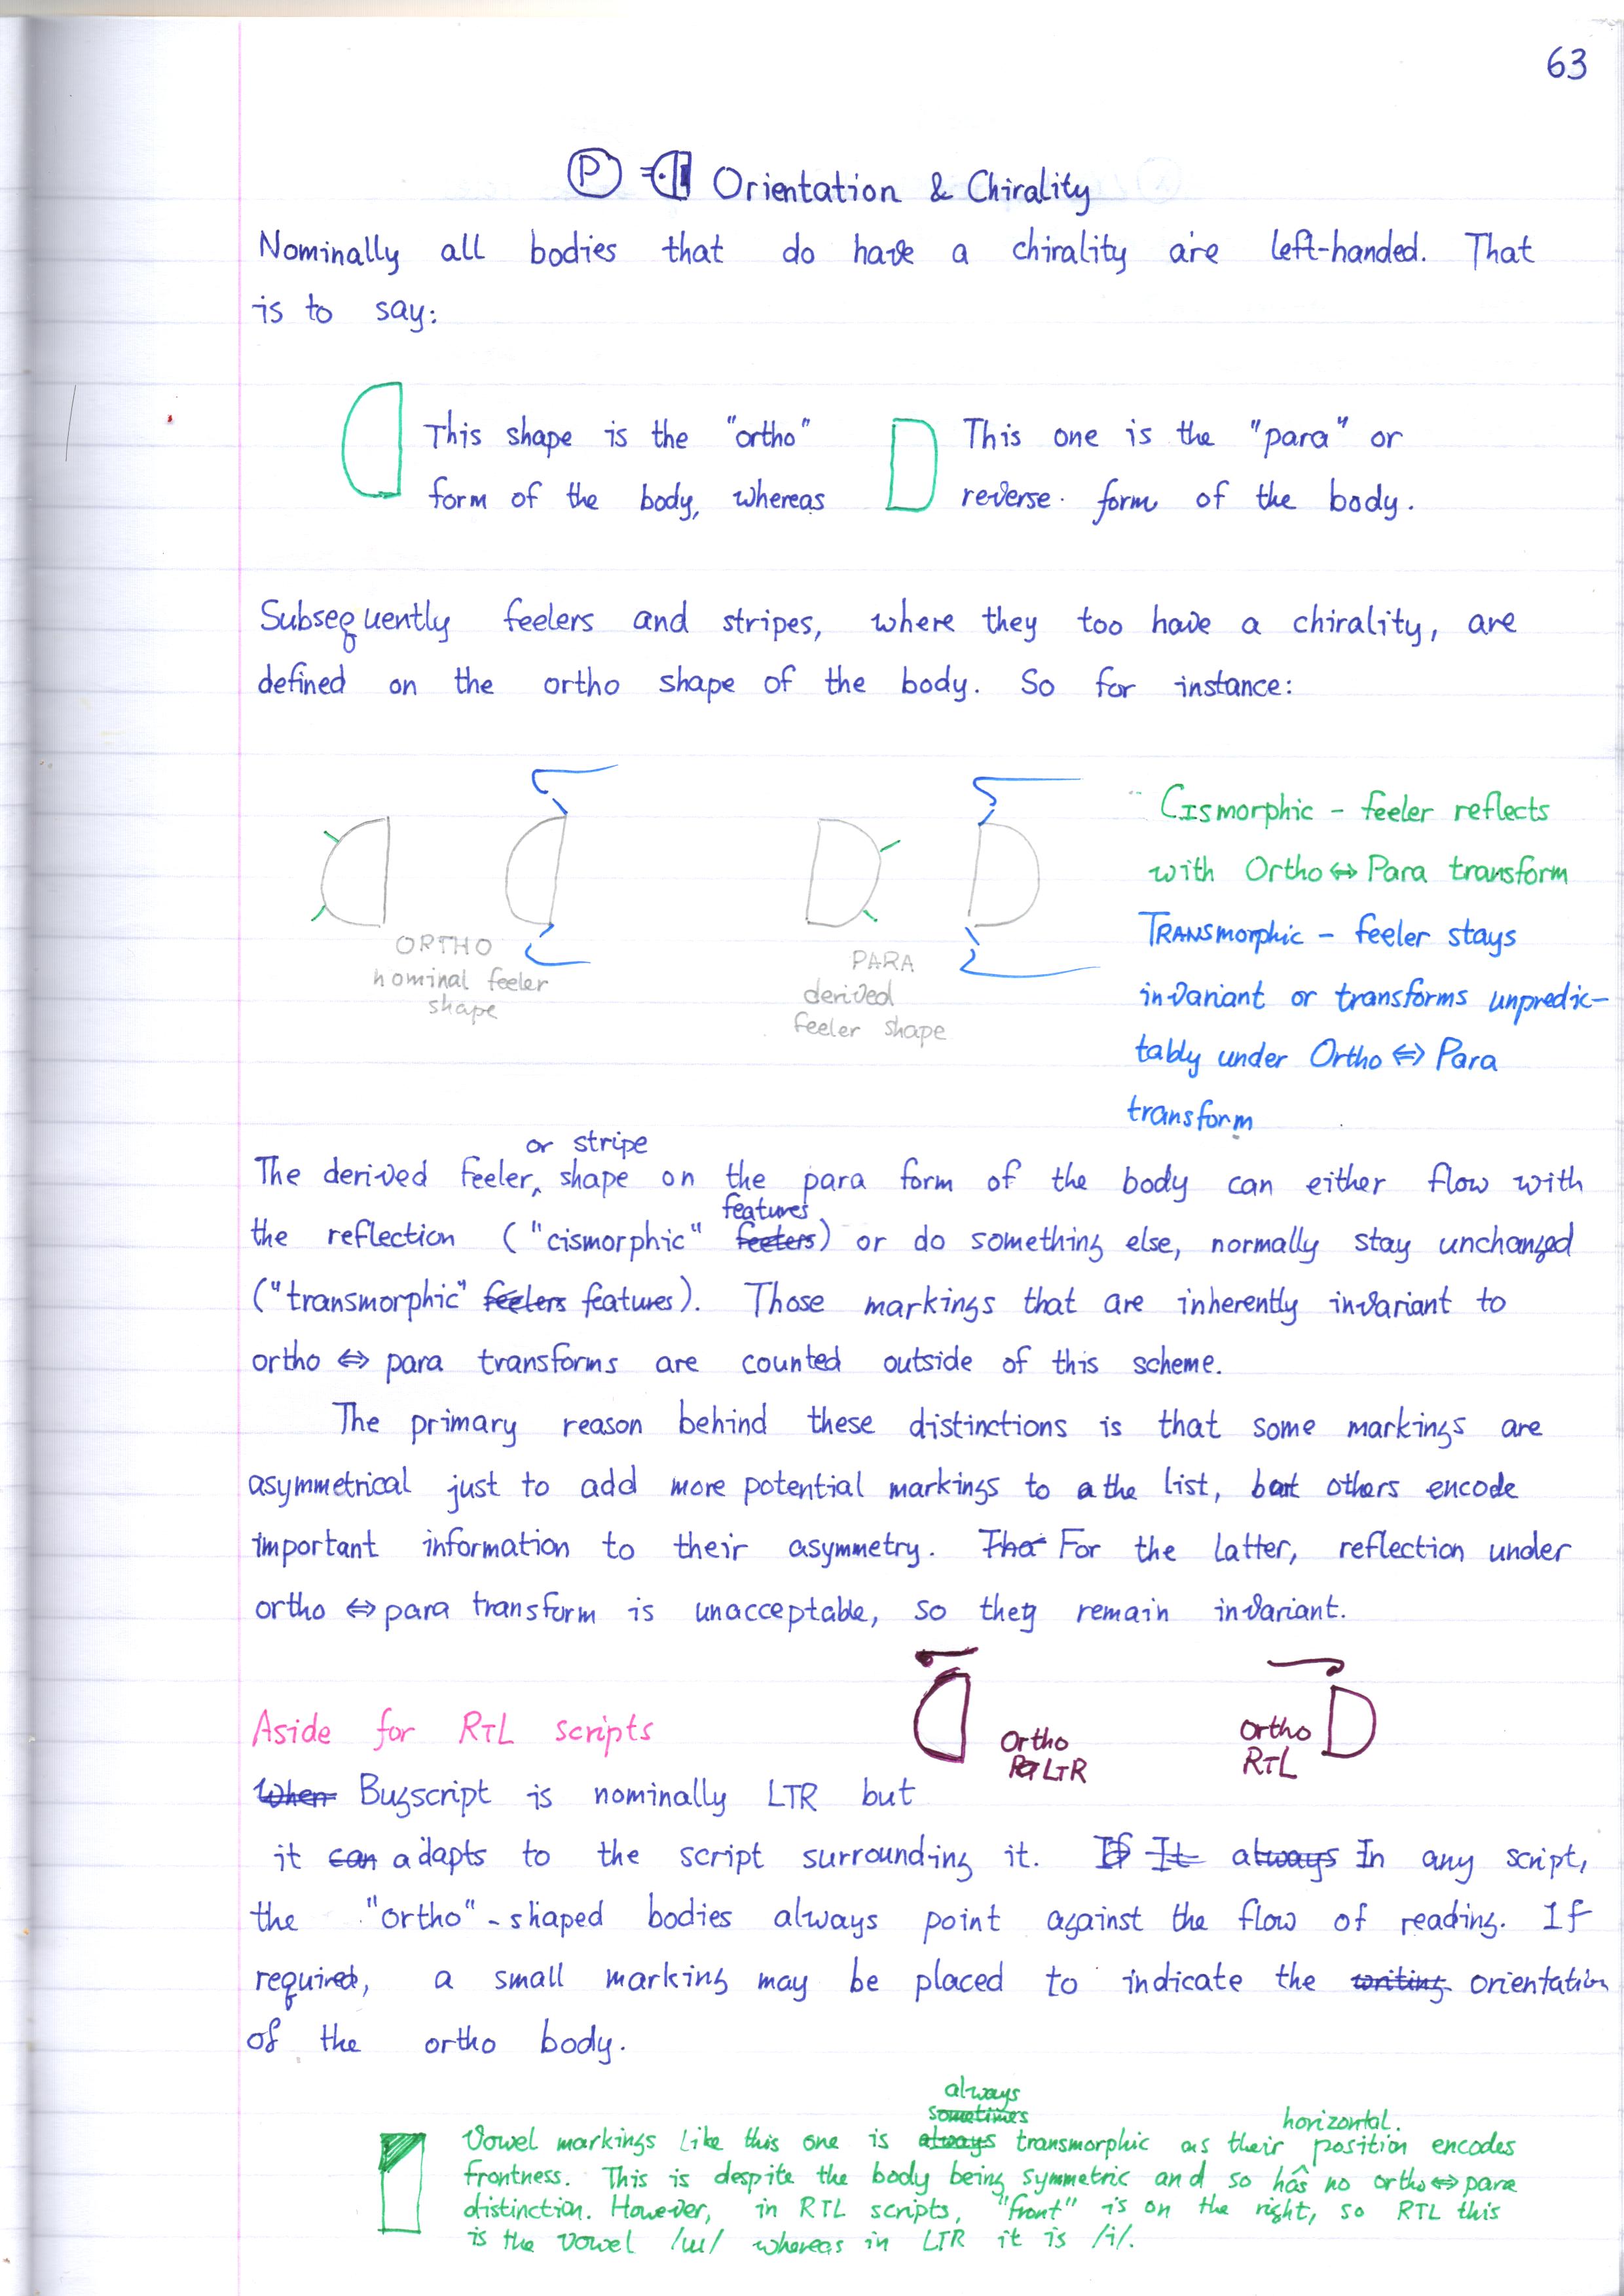 63
P Orientation & Chirality
Nominally all bodies that do have a chirality are left-handed. That
is to say:
This shape is the "ortho"
form of the body, whereas
This one is the "para" or
reverse form of the body.
Subsequently feelers and stripes, where they too have a chirality, are
defined on the ortho shape of the body. So for instance:
ORTHO
nominal feeler
shape
PARA
derived
feeler shape
Cismorphic - feeler reflects
with Ortho ⇔ Para transform
TRANSmorphic - feeler stays
invariant or transforms unpredic-
tably under Ortho ⇔ Para
transform
or stripe
The derived feeler, shape on the para form of the body can either flow with
features
the reflection ("cismorphic" feelers) or do something else, normally stay unchanged
("transmorphic" feelers features). Those markings that are inherently invariant to
ortho ⇔ para transforms are counted outside of this scheme.
The primary reason behind these distinctions is that some markings are
asymmetrical just to add more potential markings to a the list, but others encode
important information to their asymmetry. Tha For the latter, reflection under
ortho ⇔ para transform is unacceptable, so they remain invariant.
Aside for RTL scripts
Ortho
LTR
Ortho
RTL
When Bugscript is nominally LTR but
it can adapts to the script surrounding it. If It always In any script,
the "ortho"-shaped bodies always point against the flow of reading. If
required, a small marking may be placed to indicate the writing orientation
of the ortho body.
always
sometimes
horizontal.
Vowel markings like this one is always transmorphic as their position encodes
frontness. This is despite the body being symmetric and so has no ortho ⇔ para
distinction. However, in RTL scripts, "front" is on the right, so RTL this
is the vowel /ɯ/ whereas in LTR it is /i/.